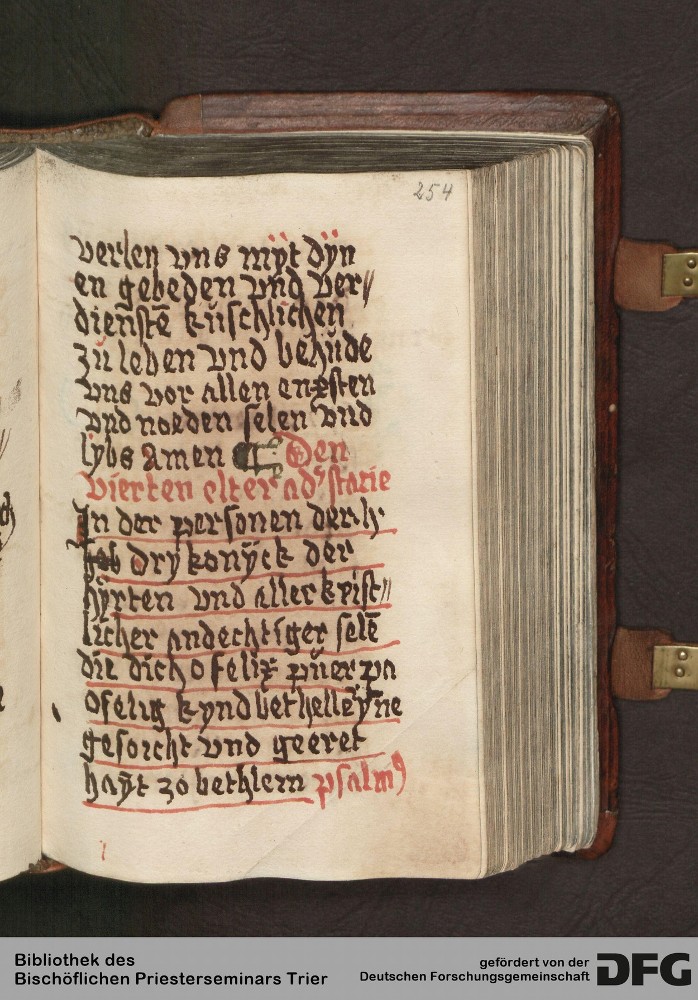 254
verlen vns mÿt dÿn
en gebeden vnd ver//
dienstē kuschlichen
zu leben vnd behude
vns vor allen enxsten
vnd noeden selen vnd
lybs amen Den
vierten elter ad' starie
In der personen der h
dry konÿck der
hÿrten vnd aller krist//
licher andechtiger selē
die dich o felix puer pa
o felig kynd bethelleÿne
gesoicht vnd geeret
haÿt zo bethlem psalmꝰ
Bibliothek des
Bischöflichen Priesterseminars Trier
gefördert von der
Deutschen Forschungsgemeinschaft DFG